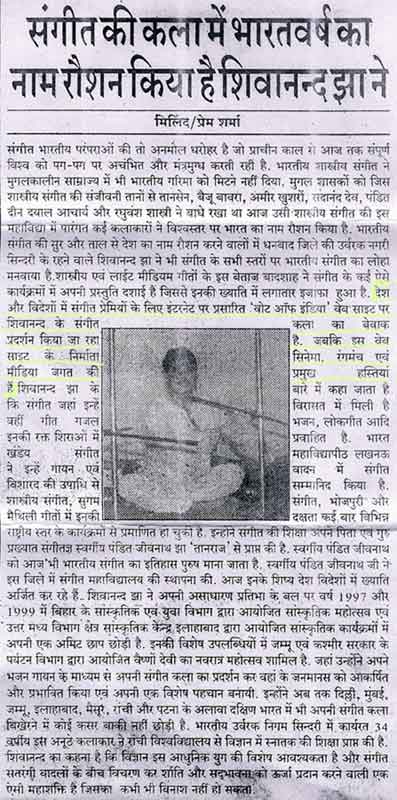 संगीत की कला में भारतवर्ष का
नाम रौशन किया है शिवानन्द झा ने
मिलिंद/प्रेम शर्मा
संगीत भारतीय परंपराओं की तो अनमोल धरोहर है जो प्राचीन काल से आज तक संपूर्ण
विश्व को पग-पग पर अचंभित और मंत्रमुग्ध करती रही है. भारतीय शास्त्रीय संगीत ने
मुगलकालीन साम्राज्य में भी भारतीय गरिमा को मिटने नहीं दिया, मुगल शासकों को जिस
शास्त्रीय संगीत की संजीवनी तानों से तानसेन, बैजू बावरा, अमीर खुशरों, सदानंद देव, पंडित
दीन दयाल आचार्य और रघुवंश शास्त्री ने बाधे रखा था आज उसी शास्त्रीय संगीत की इस
महाविद्या में पारंगत कई कलाकारों ने विश्वस्तर पर भारत का नाम रौशन किया है. भारतीय
संगीत की सुर और ताल से देश का नाम रौशन करने वालों में धनबाद जिले की उर्वरक नगरी
सिन्दरी के रहने वाले शिवानन्द झा ने भी संगीत के सभी स्तरों पर भारतीय संगीत का लोहा
मनवाया है.शास्त्रीय एवं लाईट मीडियम गीतों के इस बेताज बादशाह ने संगीत के कई ऐसे
कार्यक्रमों में अपनी प्रस्तुति दर्शाई है जिससे इनकी ख्याति में लगातार इजाफा हुआ है. देश
और विदेशों में संगीत प्रेमियों के लिए इंटरनेट पर प्रसारित 'वोट ऑफ इंडिया' वेब साइट पर
शिवानन्द के संगीत कला का बेबाक
प्रदर्शन किया जा रहा है. जबकि इस वेब
साइट के निर्माता सिनेमा, रंगमंच एवं
मीडिया जगत की प्रमुख हस्तियां
हैं शिवानन्द झा के बारे में कहा जाता है
कि संगीत जहां इन्हें विरासत में मिली है
वहीं गीत गजल भजन, लोकगीत आदि
इनकी रक्त शिराओं में प्रवाहित है. भारत
खंडेय संगीत महाविद्यापीठ लखनऊ
ने इन्हें गायन एवं वादन में संगीत
विशारद की उपाधि से सम्मानिद किया है.
शास्त्रीय संगीत, सुगम संगीत, भोजपुरी और
मैथिली गीतों में इनकी दक्षता कई बार विभिन्न
राष्ट्रीय स्तर के कार्यक्रमों से प्रमाणित हो चुकी है. इन्होंने संगीत की शिक्षा अपने पिता एवं गुरु
प्रख्यात संगीतज्ञ स्वर्गीय पंडित जीवनाथ झा 'तानराज' से प्राप्त की है. स्वर्गीय पंडित जीवनाथ
को आज भी भारतीय संगीत का इतिहास पुरुष माना जाता है. स्वर्गीय पंडित जीवनाथ जी ने
इस जिले में संगीत महाविद्यालय की स्थापना की. आज इनके शिष्य देश विदेशों में ख्याति
अर्जित कर रहे हैं. शिवानन्द झा ने अपनी असाधारण प्रतिभा के बल पर वर्ष 1997 और
1999 में बिहार के सांस्कृतिक एवं युवा विभाग द्वारा आयोजित सांस्कृतिक महोत्सव एवं
उत्तर मध्य विभाग क्षेत्र सांस्कृतिक केन्द्र इलाहाबाद द्वारा आयोजित सांस्कृतिक कार्यक्रमों में
अपनी एक अमिट छाप छोड़ी है. इनकी विशेष उपलब्धियों में जम्मू एवं कश्मीर सरकार के
पर्यटन विभाग द्वारा आयोजित वैष्णों देवी का नवरात्र महोत्सव शामिल है. जहां उन्होंने अपने
भजन गायन के माध्यम से अपनी संगीत कला का प्रदर्शन कर वहां के जनमानस को आकर्षित
और प्रभावित किया एवं अपनी एक विशेष पहचान बनायी. इन्होंने अब तक दिल्ली, मुंबई,
जम्मू, इलाहाबाद, मैसूर, रांची और पटना के अलावा दक्षिण भारत में भी अपनी संगीत कला
बिखेरने में कोई कसर बाकी नहीं छोड़ी है. भारतीय उर्वरक निगम सिन्दरी में कार्यरत 34
वर्षीय इस अनूठे कलाकार ने राँची विश्वविद्यालय से विज्ञान में स्नातक की शिक्षा प्राप्त की है.
शिवानन्द का कहना है कि विज्ञान इस आधुनिक युग की विशेष आवश्यकता है और संगीत
सतरंगी बादलों के बीच विचरण कर शांति और सद्भावना को ऊर्जा प्रदान करने वाली एक
ऐसी महाशक्ति है जिसका कभी भी विनाश नहीं हो सकता.